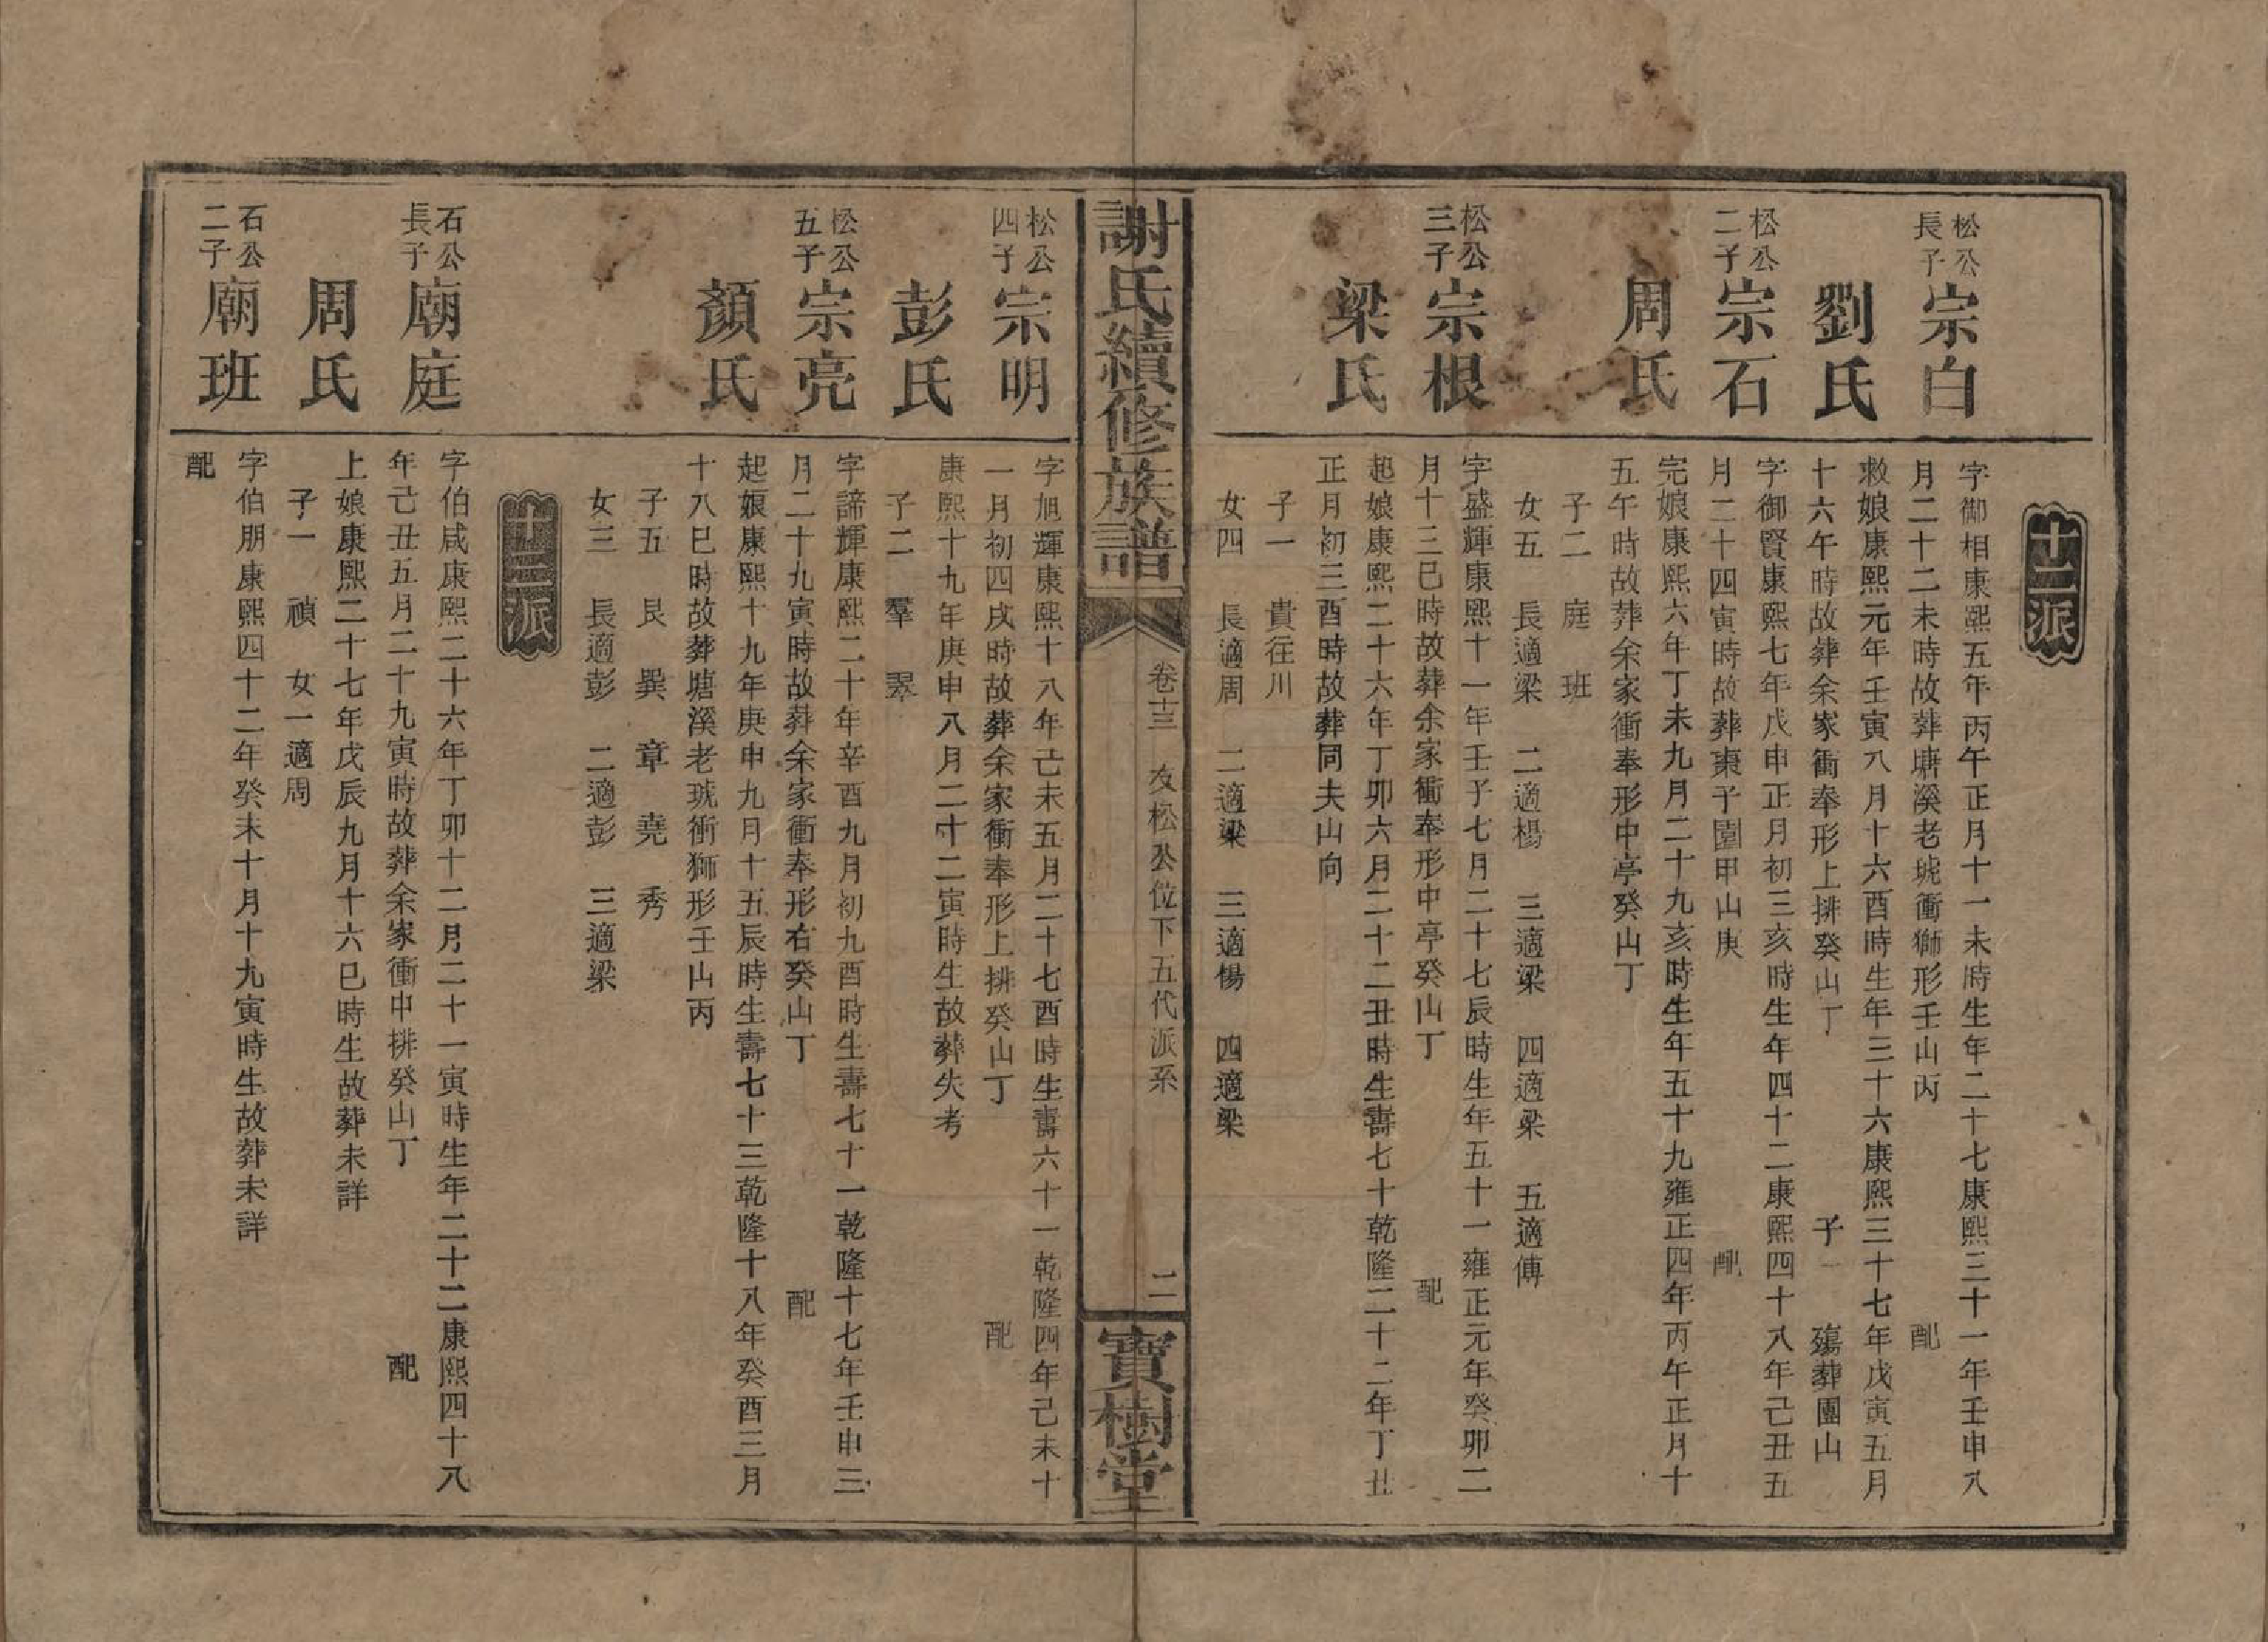 十二派
松公長子 宗白
字御相康熙五年丙午正月十一未時生年二十七康熙三十一年壬申八
月二十二未時故葬塘溪老琥衝獅形壬山丙 配
劉氏
救娘康熙元年壬寅八月十六酉時生年三十六康熙三十七年戊寅五月
十六午時故葬余家衝奉形上排癸山丁 子一 殤葬團山
松公二子 宗石
字御賢康熙七年戊申正月初三亥時生年四十二康熙四十八年己丑五
月二十四寅時故葬棗子園甲山庚 配
周氏
完娘康熙六年丁未九月二十九亥時生年五十九雍正四年丙午正月十
五午時故葬余家衝奉形中亭癸山丁
子二 庭 班
女五 長適梁 二適楊 三適梁 四適梁 五適傅
松公三子 宗根
字盛輝康熙十一年壬子七月二十七辰時生年五十一雍正元年癸卯二
月十三巳時故葬余家衝奉形中亭癸山丁 配
梁氏
起娘康熙二十六年丁卯六月二十二丑時生壽七十乾隆二十二年丁丑
正月初三酉時故葬同夫山向
子一 貴往川
女四 長適周 二適梁 三適楊 四適梁
謝氏續修族譜
卷十三 友松公位下五代派系
二
寶樹堂
松公四子 宗明
字旭輝康熙十八年己未五月二十七酉時生壽六十一乾隆四年己未十
一月初四戌時故葬余家衝奉形上排癸山丁 配
彭氏
康熙十九年庚申八月二十二寅時生故葬失考
子二 羣 翠
松公五子 宗亮
字諦輝康熙二十年辛酉九月初九酉時生壽七十一乾隆十七年壬申三
月二十九寅時故葬余家衝奉形右癸山丁 配
顏氏
起娘康熙十九年庚申九月十五辰時生壽七十三乾隆十八年癸酉三月
十八巳時故葬塘溪老琥衝獅形壬山丙
子五 艮 巽 章 堯 秀
女三 長適彭 二適彭 三適梁
十三派
石公長子 廟庭
字伯咸康熙二十六年丁卯十二月二十一寅時生年二十二康熙四十八
年己丑五月二十九寅時故葬余家衝中排癸山丁 配
周氏
上娘康熙二十七年戊辰九月十六巳時生故葬未詳
子一 禎 女一適周
石公二子 廟班
字伯朋康熙四十二年癸未十月十九寅時生故葬未詳
配